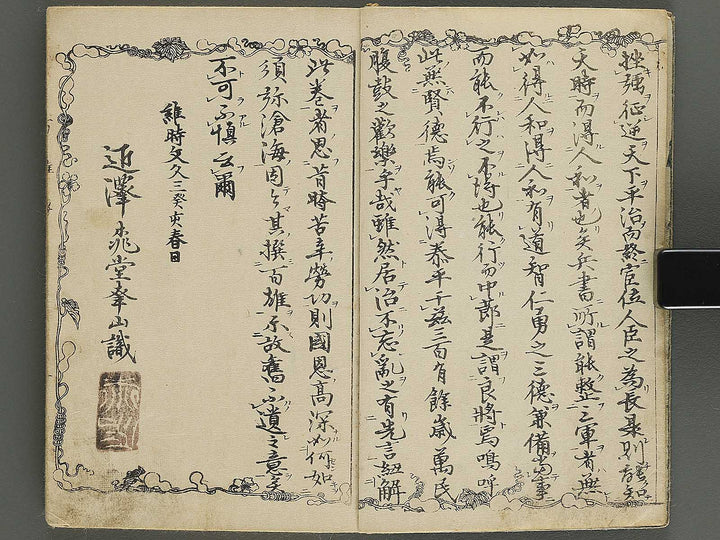 挫強征逆天下平治而終官位人臣之為長最則
天時而得人和者也矣兵書所謂能整三軍者無
如得人和得人和有道智仁勇之三徳兼備当事
而能不行之不得也能行而中節是謂良将焉嗚呼
此無賢徳焉能可得泰平于茲三百有餘歳萬民
腹鼓之歡樂乎哉雖然居治不忘亂之有先言
此巻者思昔時苦辛勞功則國恩高深如何如
須弥滄海因之其撰百雄不故舊不遺之意矣
不可不慎云爾
維時文久三癸亥春日
近澤 堂峯山識